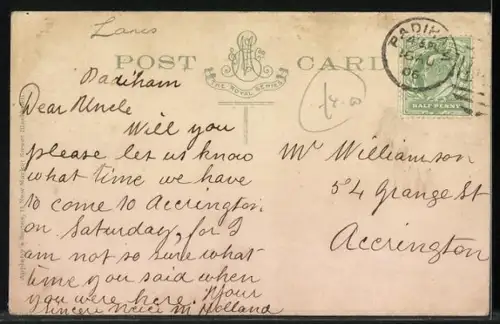 Lancs
POST CARD
THE ROYAL SERIES
PADIHAM
06
HALF PENNY
£4.00
Padiham
Dear Uncle
Will you
please let us know
what time we have
to come to Accrington
on Saturday, for I
am not so sure what
time you said when
you were here. Your
sincere niece M Holland
Mr Williamson
54 Grange St
Accrington